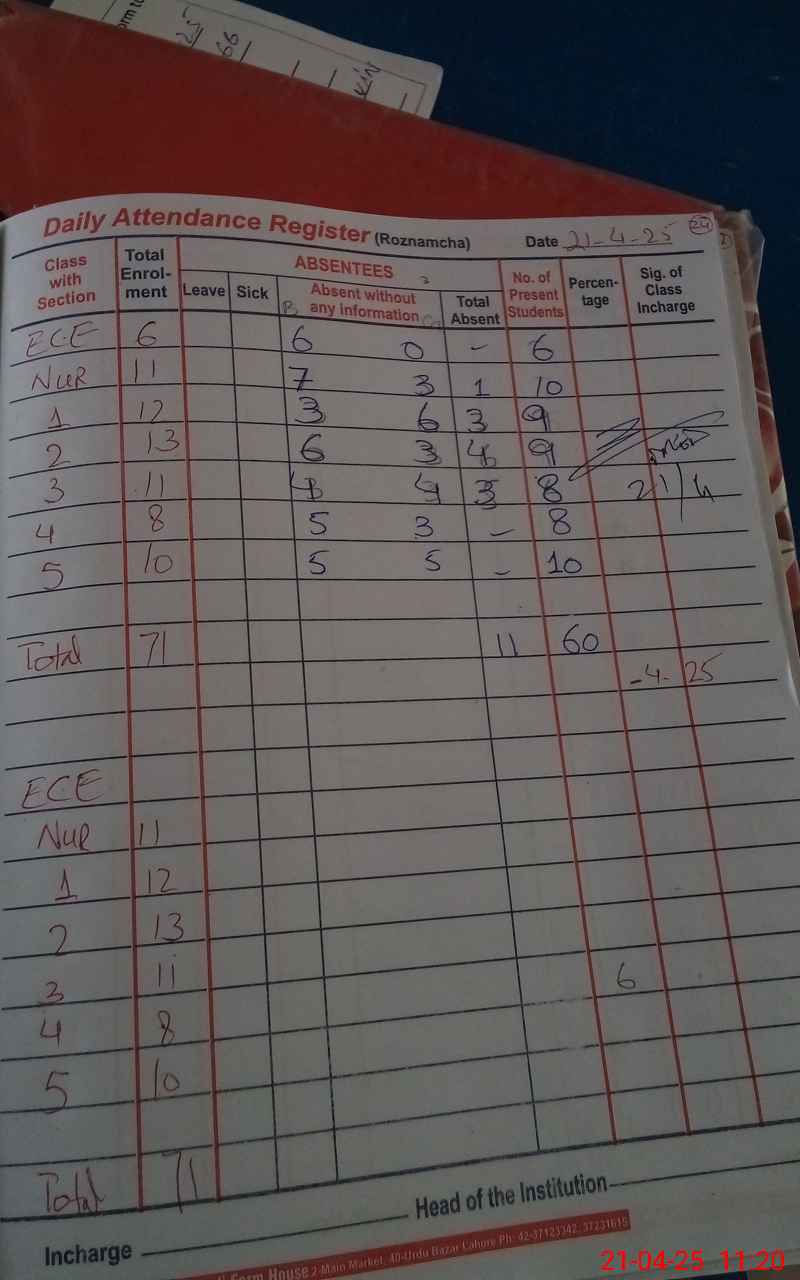 orm to
25
66
KIN
Daily Attendance Register (Roznamcha) Date 21-4-25 24
Class with Section Total Enrol-ment ABSENTEES No. of Present Students Percen-tage Sig. of Class Incharge
Leave Sick B Absent without any information G Total Absent
ECE 6 6 0 - 6
NUR 11 7 3 1 10
1 12 3 6 3 9
2 13 6 3 4 9
3 11 4 4 3 8 21/4
4 8 5 3 - 8
5 10 5 5 - 10
Total 71 11 60
-4- 25
ECE
NUR 11
1 12
2 13
3 11 6
4 8
5 10
Total 71
Incharge Head of the Institution
Form House 2-Main Market, 40-Urdu Bazar Lahore Ph: 42-37123342, 37231615
21-04-25 11:20